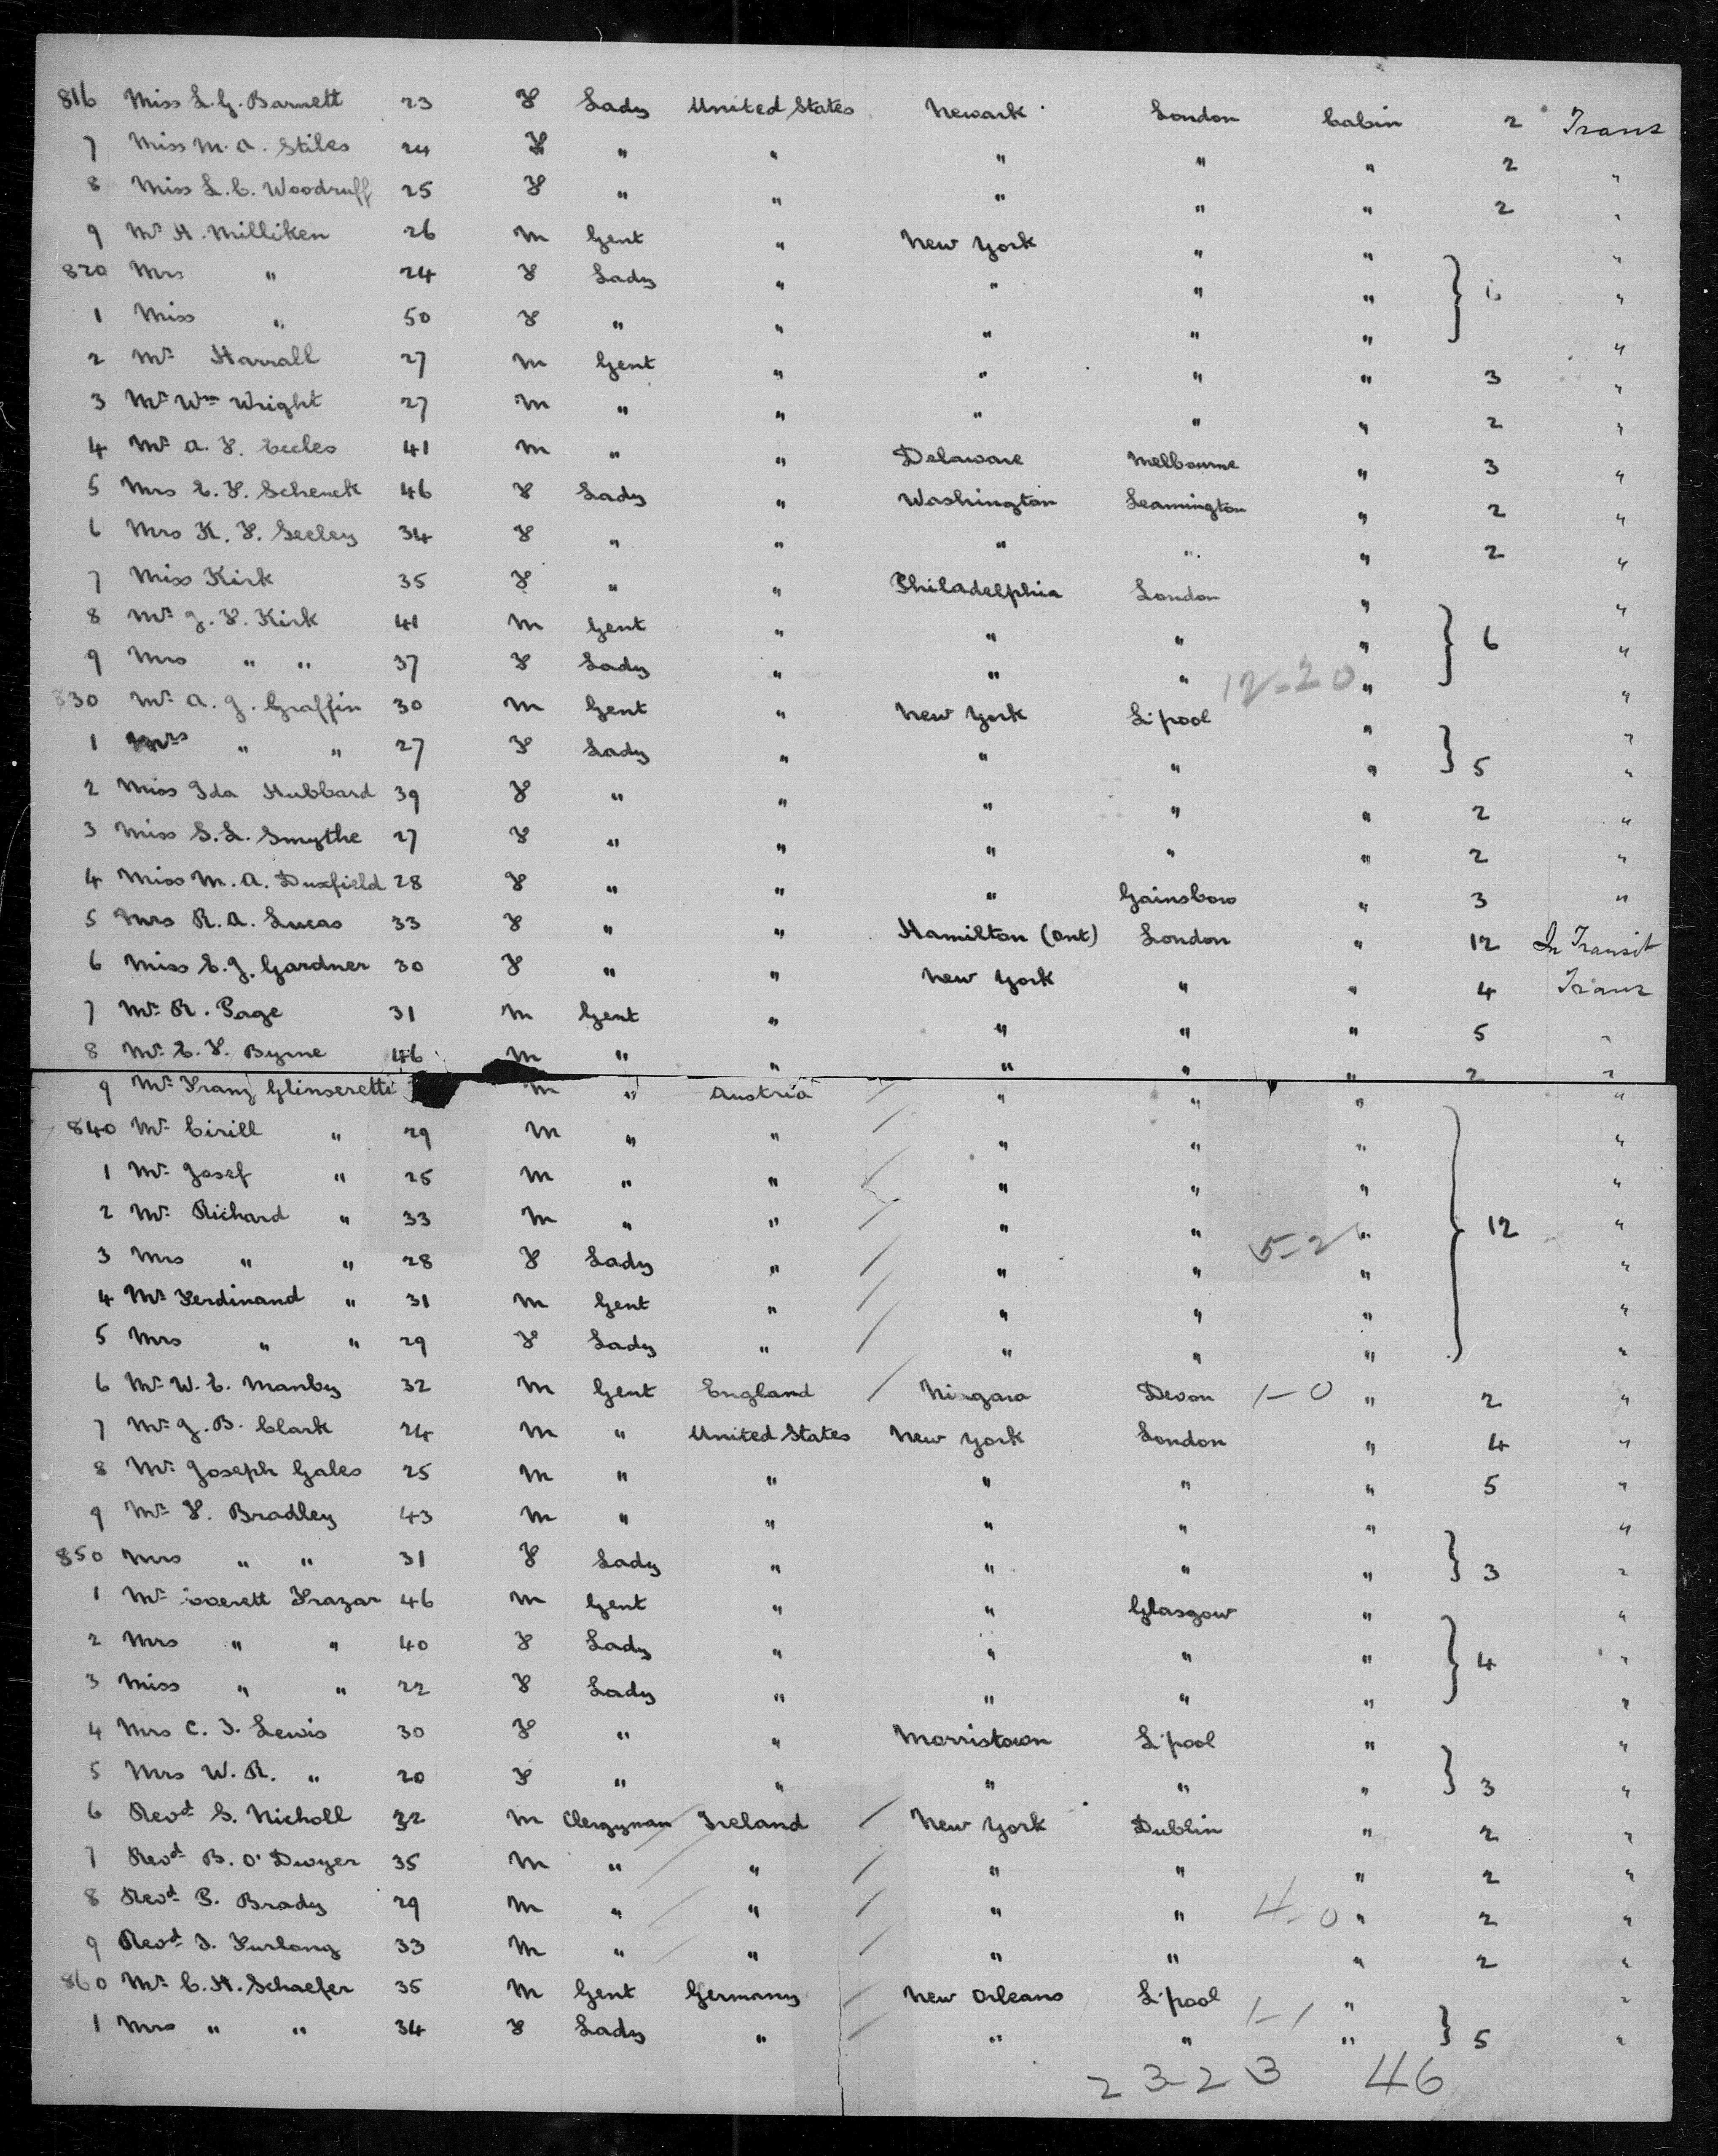 816 Miss L. G. Barnett 23 F Lady United States Newark London Cabin 2 Trans
7 Miss M. A. Stiles 24 F " " " " " 2 "
8 Miss L. C. Woodruff 25 F " " " " " 2 "
9 Mr H. Milliken 26 M Gent " New York " " "
820 Mrs " 24 F Lady " " " " } "
1 Miss " 50 F " " " " " "
2 Mr Harrall 27 M Gent " " " " 3 "
3 Mr Wm Wright 27 M " " " " " 2 "
4 Mr A. F. Eccles 41 M " " Delaware Melbourne " 3 "
5 Mrs E. F. Schenck 46 F Lady " Washington Leamington " 2 "
6 Mrs K. F. Seeley 34 F " " " " " 2 "
7 Miss Kirk 35 F " " Philadelphia London " "
8 Mr J. F. Kirk 41 M Gent " " " " } 6 "
9 Mrs " " 37 F Lady " " " 12-20 " "
830 Mr A. J. Graffin 30 M Gent " New York L'pool " "
1 Mrs " " 27 F Lady " " " " } 5 "
2 Miss Ida Hubbard 39 F " " " " " 2 "
3 Miss S. L. Smythe 27 F " " " " " 2 "
4 Miss M. A. Duxfield 28 F " " " Gainsboro " 3 "
5 Mrs R. A. Lucas 33 F " " Hamilton (Ont) London " 12 In Transit
6 Miss E. J. Gardner 30 F " " New York " " 4 Trans
7 Mr R. Page 31 M Gent " " " " 5 "
8 Mr E. F. Byrne 46 M " " " " " 2 "
9 Mr Franz Glinseretti M " Austria / " " " "
840 Mr Cirill " 29 M " " / " " " "
1 Mr Josef " 25 M " " / " " " "
2 Mr Richard " 33 M " " / " " " } 12 "
3 Mrs " " 28 F Lady " / " " 5-2 " "
4 Mr Ferdinand " 31 M Gent " / " " " "
5 Mrs " " 29 F Lady " / " " " "
6 Mr W. E. Manby 32 M Gent England / Niagara Devon 1-0 " 2 "
7 Mr J. B. Clark 24 M " United States New York London " 4 "
8 Mr Joseph Gales 25 M " " " " " 5 "
9 Mr F. Bradley 43 M " " " " " "
850 Mrs " " 31 F Lady " " " " } 3 "
1 Mr Everett Frazar 46 M Gent " " Glasgow " "
2 Mrs " " 40 F Lady " " " " } 4 "
3 Miss " " 22 F Lady " " " " "
4 Mrs C. J. Lewis 30 F " " Morristown L'pool " "
5 Mrs W. R. " 20 F " " " " " } 3 "
6 Revd S. Nicholl 32 M Clergyman / Ireland / New York Dublin " 2 "
7 Revd B. O'Dwyer 35 M " / " / " " " 2 "
8 Revd P. Brady 29 M " / " / " " 4-0 " 2 "
9 Revd J. Furlong 33 M " / " / " " " 2 "
860 Mr C. H. Schaefer 35 M Gent Germany / New Orleans L'pool 1-1 " "
1 Mrs " " 34 F Lady " / " " " } 5 "
23-23 46